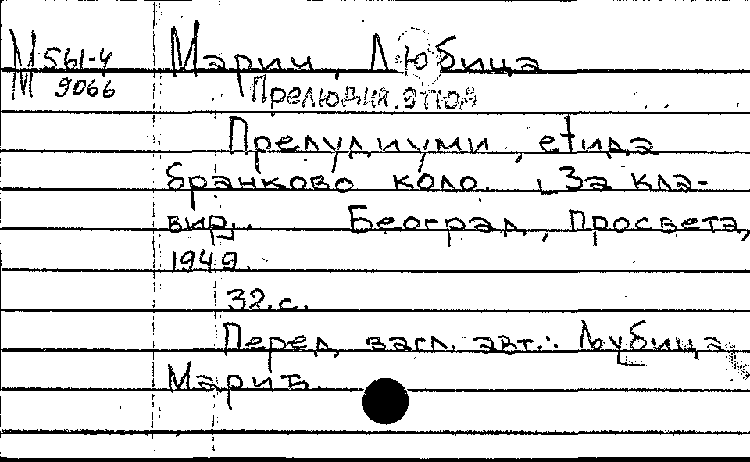 М 561-4
9066
Марич, Любица
Прелюдия, этюд
Прелудиуми, etида
бранково коло. За кла-
вир. Београд, Просвета,
1949.
32.с.
Перед загл. авт.: Љубица
Мариħ.